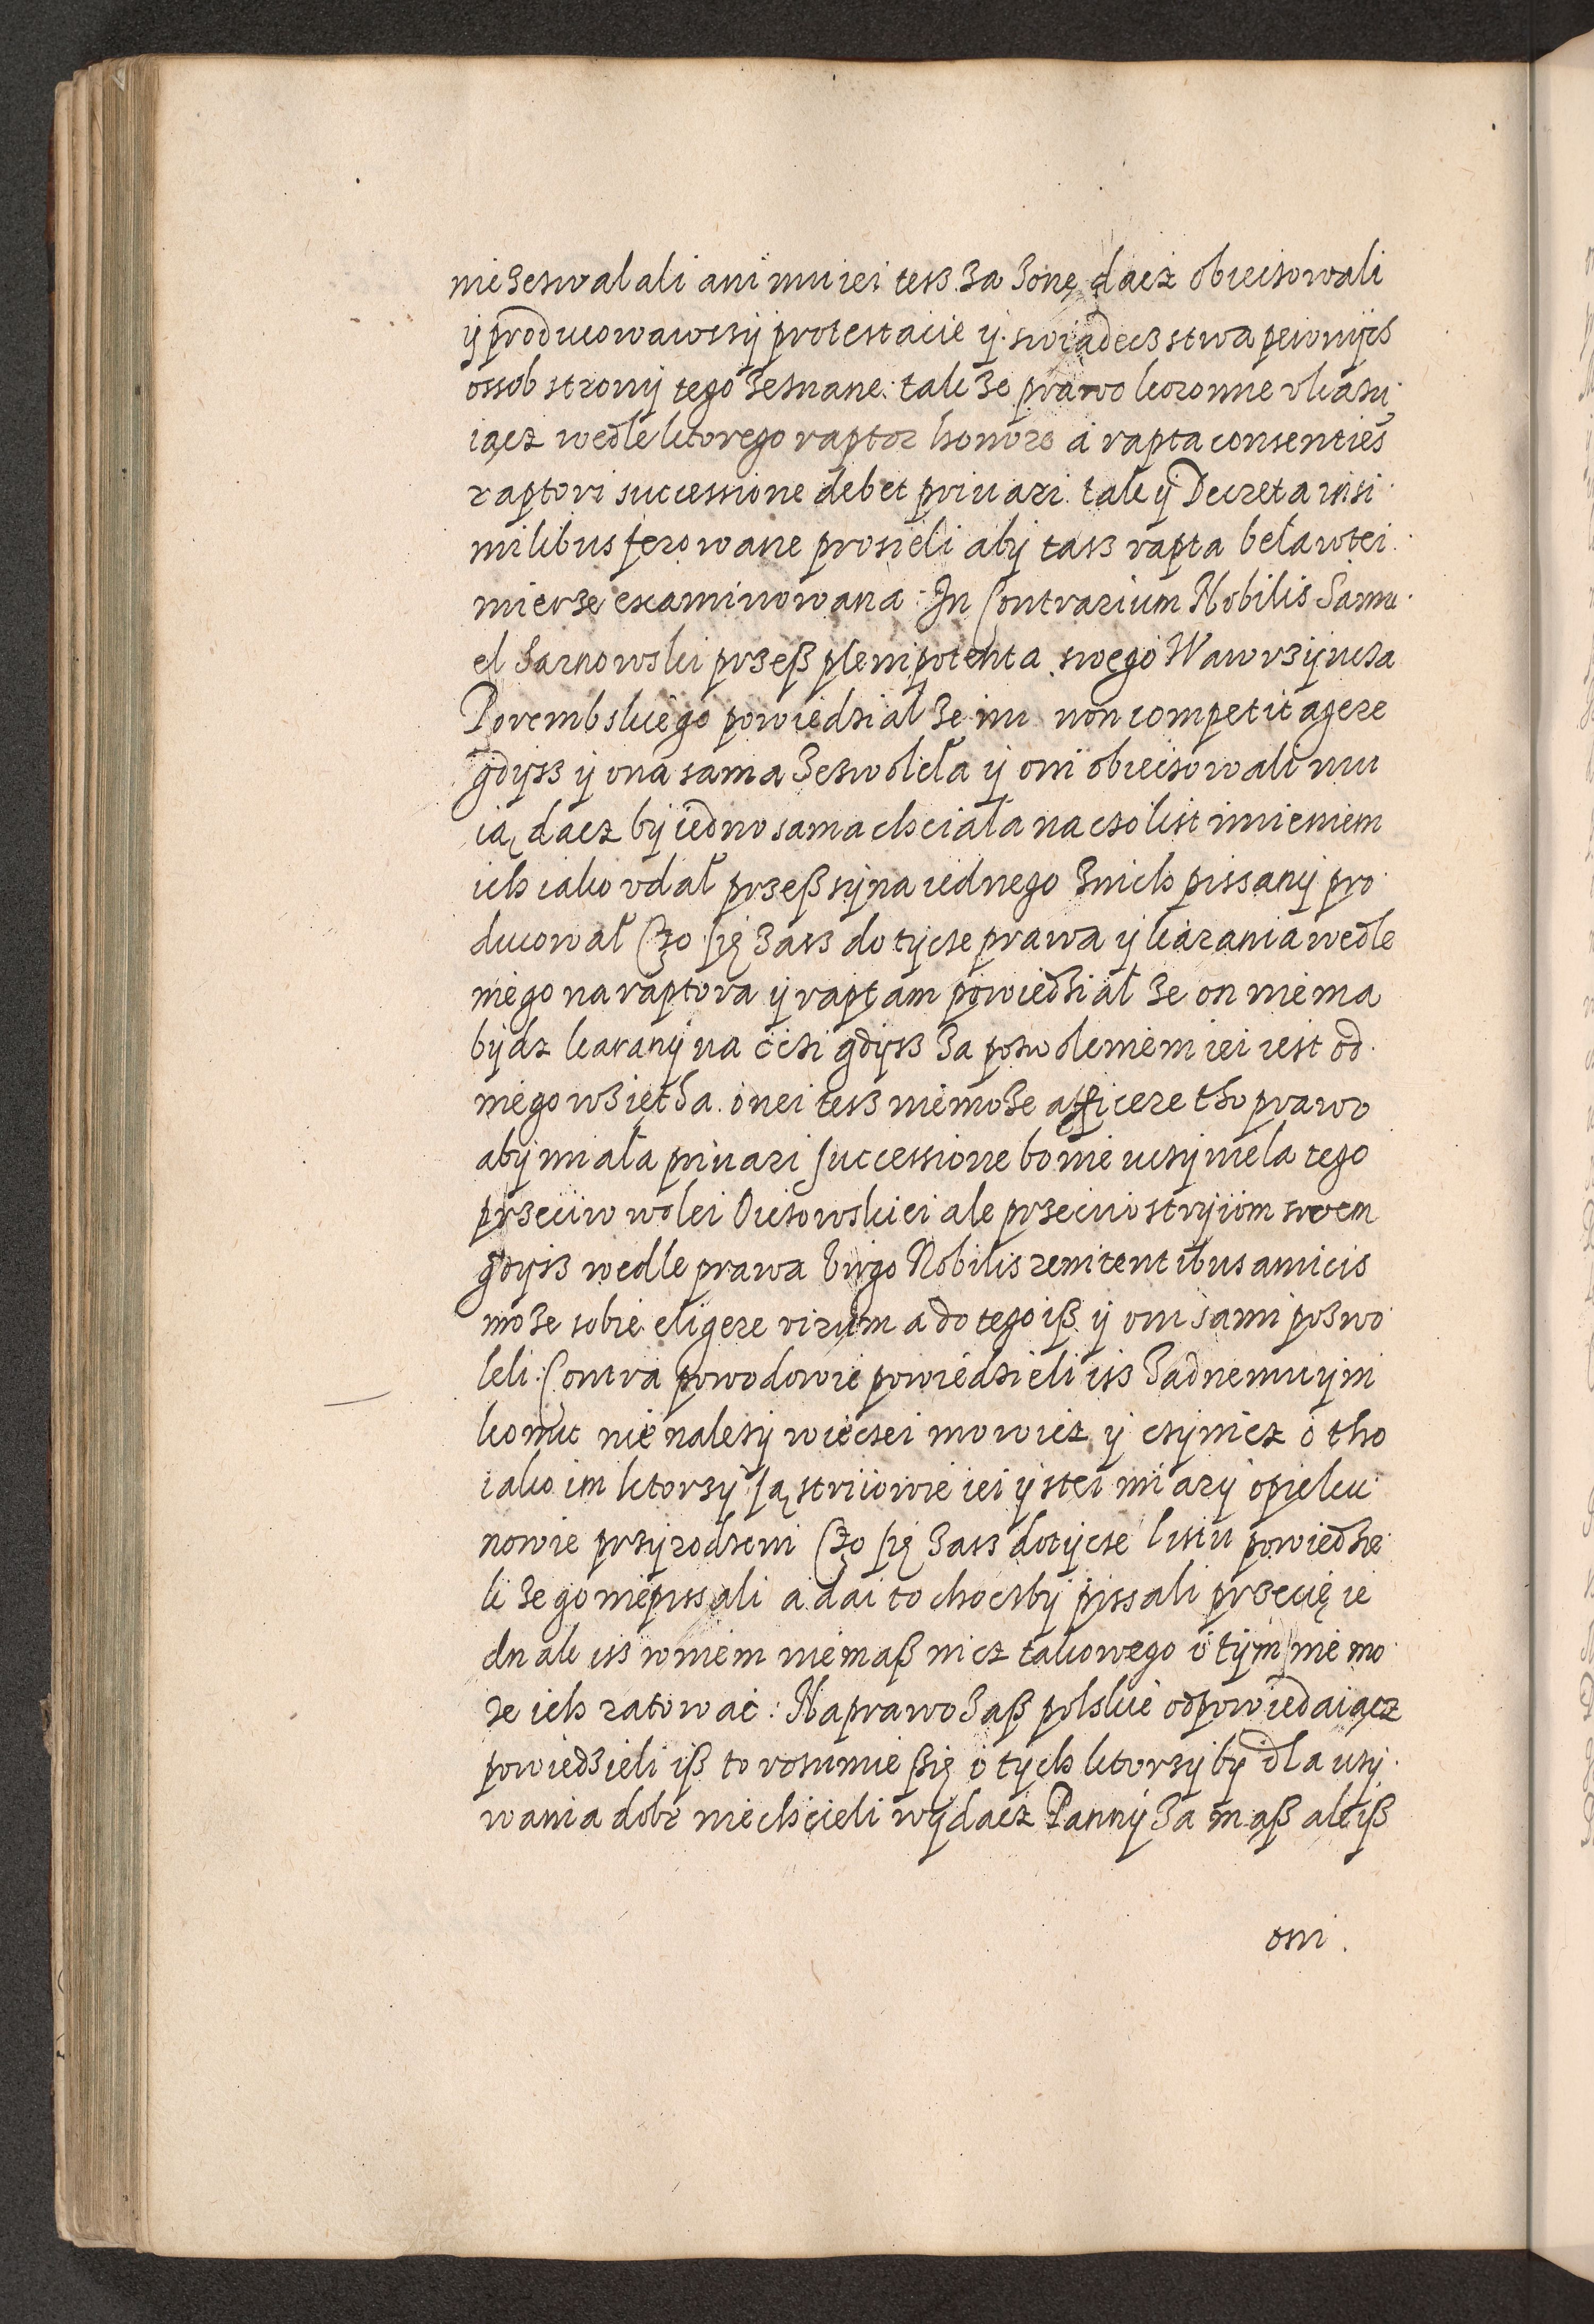 nie zezwalali ani mu iei tesz za żonę dacz obieczowali
ÿ producowawszÿ protestacie ÿ swiadecstwa pewnÿch
ossob stronÿ tego zeznane. tak ze prawo koronne vkazu
iącz wedle ktorego raptor honore a rapta consenties
raptori successione debet priuari. tak ÿ Decreta insi
milibus ferowane prosieli abÿ tasz rapta bela wtei
mierze examinowana. In Contrarium Nobilis Samu
el Sarnowski przeß plenipotenta swego Wawrzÿncza
Porembskiego powiedzial ze mu non competit agere
gdÿsz ÿ ona sama zezwolela ÿ oni obieczowali mu
ią dacz bÿ iedno sama chciała na czo list imieniem
ich iako vdał przeß sÿna iednego znich pissanÿ pro
ducował Czo się zasz dotÿcze prawa ÿ karania wedle
niego na raptora ÿ raptam powiedział ze on nie ma
bÿdz karanÿ na cżci gdÿsz za pozwoleniem iei iest od
niego wzietha. onei tesz niemoze afficere tho prawo
abÿ miała priuari successione bo nie uczÿniela tego
przeciw wolei Oiczowskiei ale przeciw strÿiom swem
gdÿsz wedle prawa Virgo Nobilis renitentibus amicis
moze sobie eligere virum a do tego iß ÿ oni sami pozwo
leli. Contra powodowie powiedzieli isz żadnemu ÿni
komu nie nalezÿ wieczei mowicz ÿ czÿnicz o tho
iako im ktorzÿ są striiowie iei ÿ stei miarÿ opieku
nowie przÿrodzeni Czo się zasz dotÿcze listu powiedzie
li ze go niepissali a dai to choczbÿ pissali przecię ie
dnak isz wniem niemaß nicz takowego o tÿm nie mo
ze ich ratowac: Na prawo zaß polskie odpowiedaiącz
powiedzieli iß to rozumie ßię o tÿch ktorzÿ bÿ dla uzÿ
wania dobr niechcieli wÿdacz Pannÿ za mąß ale iß
oni.